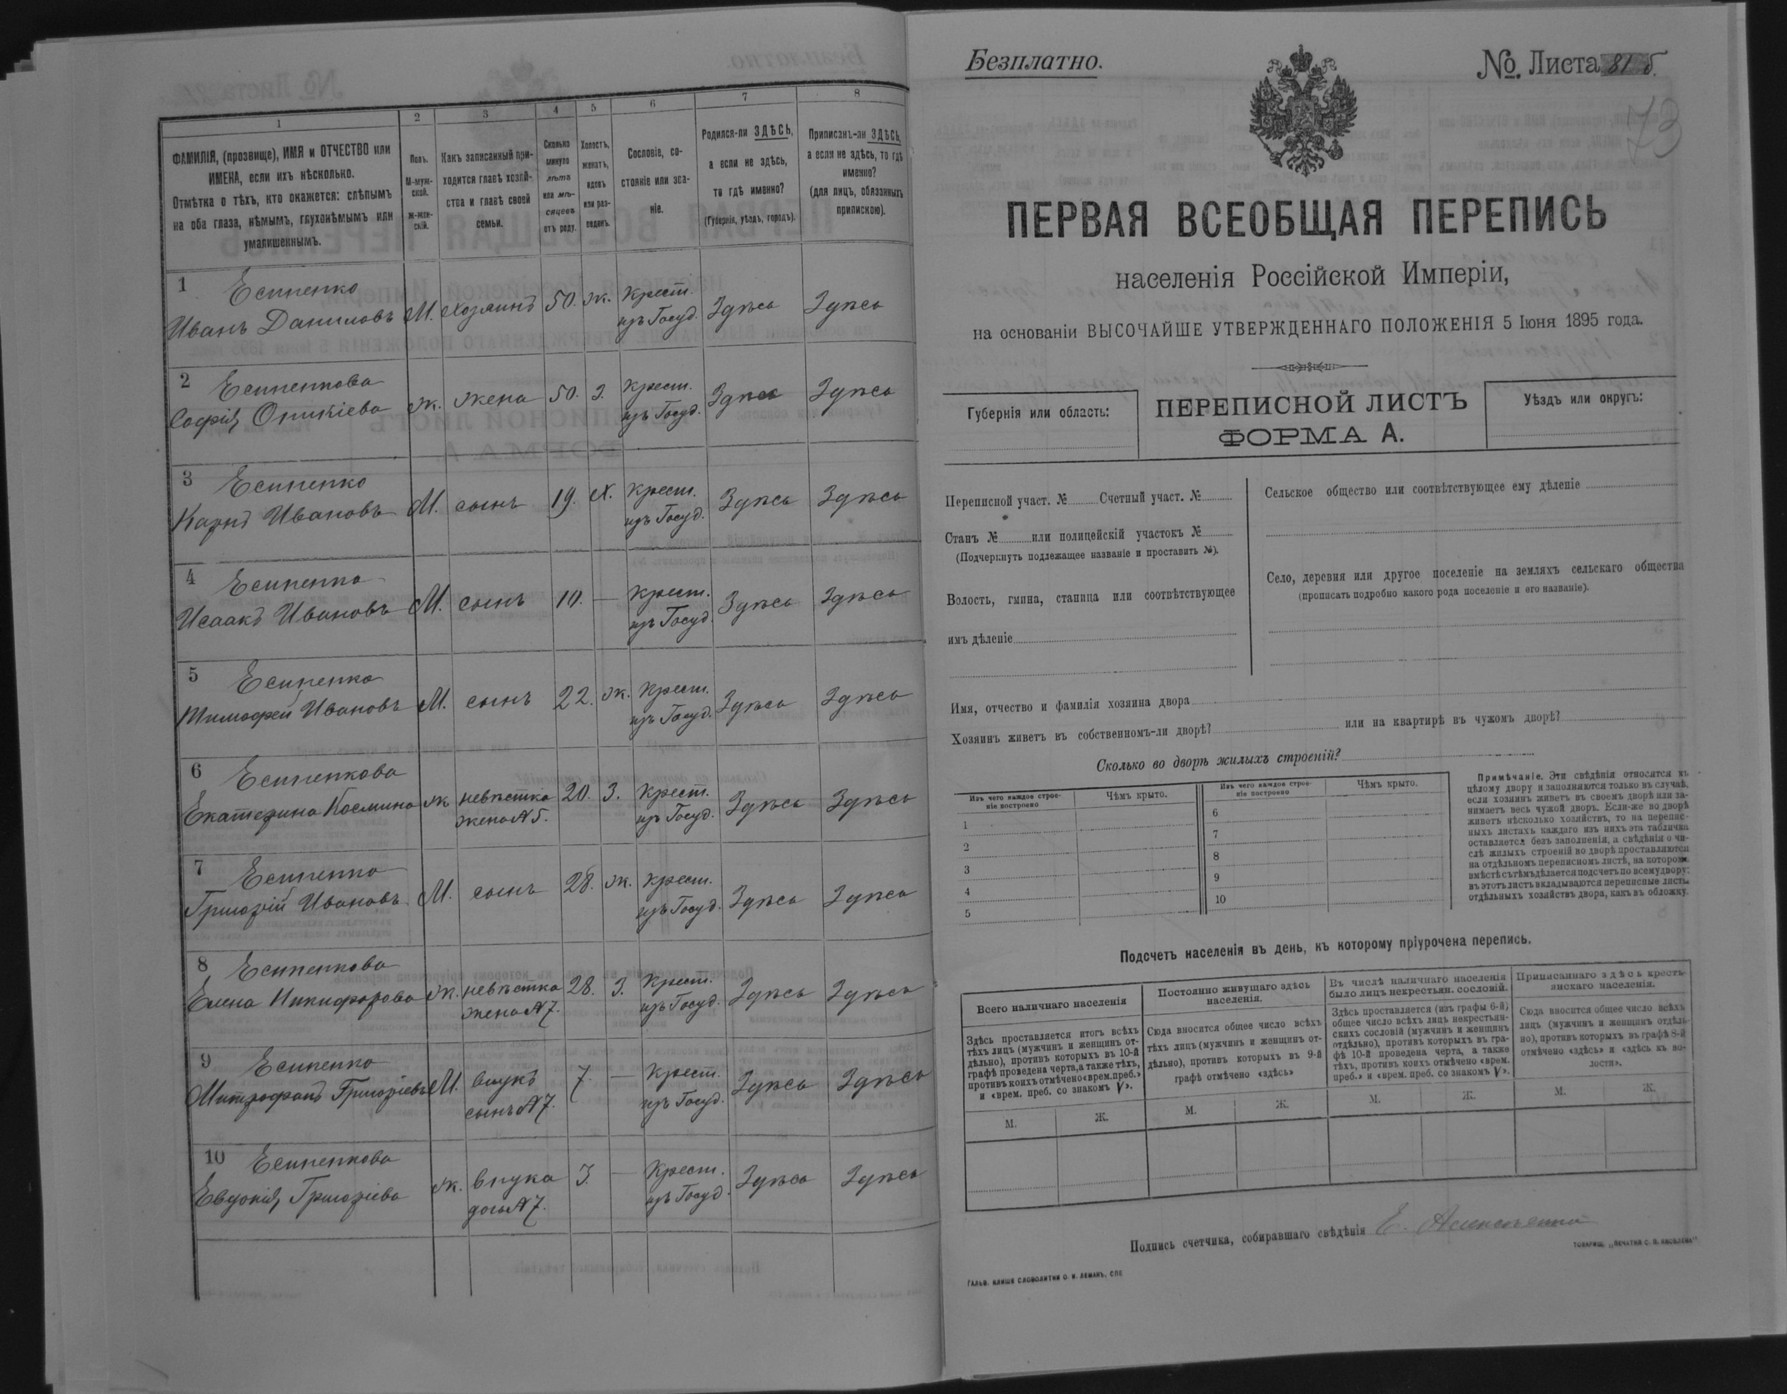 1
2
3
4
5
6
7
8
ФАМИЛІЯ, (прозвище), ИМЯ и ОТЧЕСТВО или
ИМЕНА, если ихъ нѣсколько.
Отмѣтка о тѣхъ, кто окажется: слѣпымъ
на оба глаза, нѣмымъ, глухонѣмымъ или
умалишеннымъ.
Полъ.
М-муж-
ской.
Ж-жен-
скій.
Какъ записанный при-
ходится главѣ хозяй-
ства и главѣ своей
семьи.
Сколько
минуло
лѣтъ
или мѣ-
сяцевъ
отъ роду.
Холостъ,
женатъ,
вдовъ
или раз-
веденъ.
Сословіе, со-
стояніе или зва-
ніе.
Родился-ли ЗДѢСЬ,
а если не здѣсь,
то гдѣ именно?
(Губернія, уѣздъ, городъ).
Приписанъ-ли ЗДѢСЬ,
а если не здѣсь, то гдѣ
именно?
(для лицъ, обязанныхъ
припискою).
1 Есипенко
Иванъ Даниловъ М. хозяинъ 50. ж. Крест. изъ Госуд. Здѣсь Здѣсь
2 Есипенкова
Софія Оникіева ж. жена 50. З. Крест. изъ Госуд. Здѣсь Здѣсь
3 Есипенко
Карпъ Ивановъ М. сынъ 19. Х. Крест. изъ Госуд. Здѣсь Здѣсь
4 Есипенко
Исаакъ Ивановъ М. сынъ 10. — Крест. изъ Госуд. Здѣсь Здѣсь
5 Есипенко
Тимофей Ивановъ М. сынъ 22. ж. Крест. изъ Госуд. Здѣсь Здѣсь
6 Есипенкова
Екатерина Космина ж. невѣстка жена №5. 20. З. Крест. изъ Госуд. Здѣсь Здѣсь
7 Есипенко
Григорій Ивановъ М. сынъ 28. ж. Крест. изъ Госуд. Здѣсь Здѣсь
8 Есипенкова
Елена Никифорова ж. невѣстка жена №7. 28. З. Крест. изъ Госуд. Здѣсь Здѣсь
9 Есипенко
Митрофанъ Григоріевъ М. внукъ сынъ №7. 7. — Крест. изъ Госуд. Здѣсь Здѣсь
10 Есипенкова
Евдокія Григоріева ж. внука дочь №7. 3. — Крест. изъ Госуд. Здѣсь Здѣсь
Безплатно.
№. Листа 81 б.
73
ПЕРВАЯ ВСЕОБЩАЯ ПЕРЕПИСЬ
населенія Россійской Имперіи,
на основаніи ВЫСОЧАЙШЕ УТВЕРЖДЕННАГО ПОЛОЖЕНІЯ 5 Іюня 1895 года.
Губернія или область:
ПЕРЕПИСНОЙ ЛИСТЪ
ФОРМА А.
Уѣздъ или округъ:
Переписной участ. № Счетный участ. №
Станъ № или полицейскій участокъ №
(Подчеркнуть подлежащее названіе и проставить №).
Волость, гмина, станица или соотвѣтствующее
имъ дѣленіе
Сельское общество или соотвѣтствующее ему дѣленіе
Село, деревня или другое поселеніе на земляхъ сельскаго общества
(прописать подробно какого рода поселеніе и его названіе).
Имя, отчество и фамилія хозяина двора
Хозяинъ живетъ въ собственномъ-ли дворѣ? или на квартирѣ въ чужомъ дворѣ?
Сколько во дворѣ жилыхъ строеній?
Изъ чего каждое строе-
ніе построено
Чѣмъ крыто.
Изъ чего каждое строе-
ніе построено
Чѣмъ крыто.
1
2
3
4
5
6
7
8
9
10
Примѣчаніе. Эти свѣдѣнія относятся къ
цѣлому двору и заполняются только въ случаѣ,
если хозяинъ живетъ въ своемъ дворѣ или за-
нимаетъ весь чужой дворъ. Если-же во дворѣ
живетъ нѣсколько хозяйствъ, то на перепис-
ныхъ листахъ каждаго изъ нихъ эта табличка
оставляется безъ заполненія, а свѣдѣнія о чи-
слѣ жилыхъ строеній во дворѣ проставляются
на отдѣльномъ переписномъ листѣ, на которомъ
вмѣстѣ съ тѣмъ дѣлается подсчетъ по всему двору;
въ этотъ листъ вкладываются переписные листы
отдѣльныхъ хозяйствъ двора, какъ въ обложку.
Подсчетъ населенія въ день, къ которому пріурочена перепись.
Всего наличнаго населенія
Здѣсь проставляется итогъ всѣхъ
тѣхъ лицъ (мужчинъ и женщинъ от-
дѣльно), противъ которыхъ въ 10-й
графѣ проведена черта, а также тѣхъ,
противъ коихъ отмѣчено «врем. преб.»
и «врем. преб. со знакомъ V».
Постоянно живущаго здѣсь
населенія.
Сюда вносится общее число всѣхъ
тѣхъ лицъ (мужчинъ и женщинъ от-
дѣльно), противъ которыхъ въ 9-й
графѣ отмѣчено «здѣсь»
Въ числѣ наличнаго населенія
было лицъ некрестьян. сословій.
Здѣсь проставляется (изъ графы 6-й)
общее число всѣхъ лицъ некрестьян-
скихъ сословій (мужчинъ и женщинъ
отдѣльно), противъ которыхъ въ гра-
фѣ 10-й проведена черта, а также
тѣхъ, противъ коихъ отмѣчено «врем.
преб.» и «врем. преб. со знакомъ V».
Приписаннаго здѣсь кресть-
янскаго населенія.
Сюда вносится общее число всѣхъ
лицъ (мужчинъ и женщинъ отдѣль-
но), противъ которыхъ въ графѣ 8-й
отмѣчено «здѣсь» и «здѣсь къ во-
лости».
М. Ж. М. Ж. М. Ж. М. Ж.
Подпись счетчика, собиравшаго свѣдѣнія Е.
ГАЛЬВ. КЛИШЕ СЛОВОЛИТНИ О. И. ЛЕМАНЪ, СПБ
ТОВАРИЩ. „ПЕЧАТНЯ С. П. ЯКОВЛЕВА"